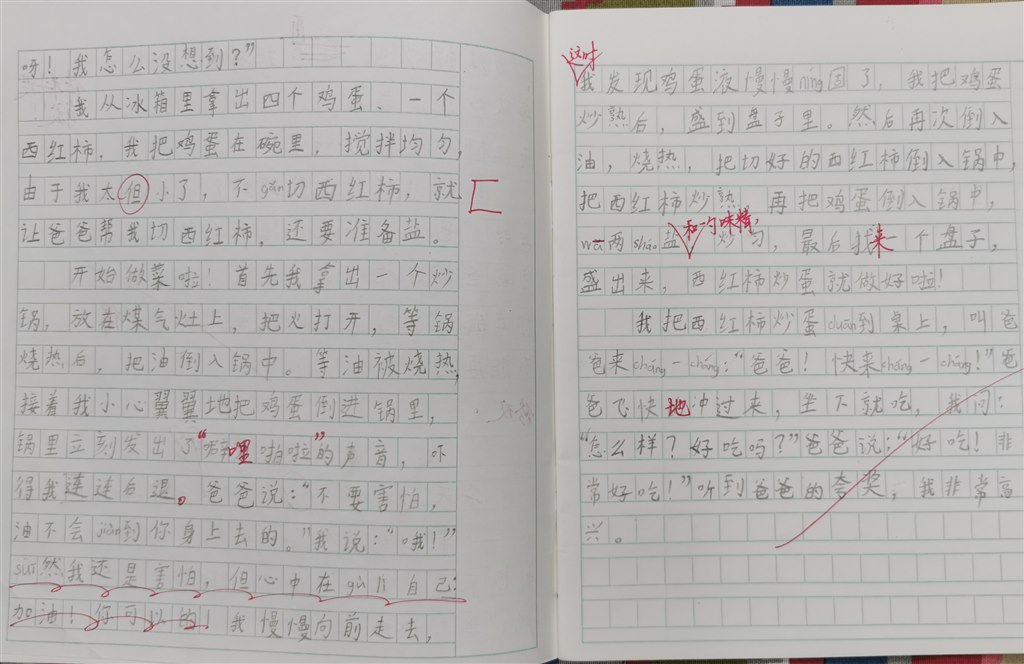 呀！我怎么没想到？”
我从冰箱里拿出四个鸡蛋、一个
西红柿，我把鸡蛋在碗里，搅拌均匀，
由于我太但小了，不gǎn切西红柿，就
让爸爸帮我切西红柿，还要准备盐。
开始做菜啦！首先我拿出一个炒
锅，放在煤气灶上，把火打开，等锅
烧热后，把油倒入锅中。等油被烧热，
接着我小心翼翼地把鸡蛋倒进锅里，
锅里立刻发出了“噼哩啪啦”的声音，吓
得我连连后退。爸爸说：“不要害怕，
油不会jiàn到你身上去的。”我说：“哦！”
suī然我还是害怕，但心中在gǔ lì自己：
加油！你可以的！我慢慢向前走去，
这时
我发现鸡蛋液慢慢níng固了，我把鸡蛋
炒熟后，盛到盘子里。然后再次倒入
油，烧热，把切好的西红柿倒入锅中，
把西红柿炒熟，再把鸡蛋倒入锅中，
和一勺味精，
wā两sháo盐炒匀，最后找来一个盘子，
盛出来，西红柿炒蛋就做好啦！
我把西红柿炒蛋duān到桌上，叫爸
爸来cháng一cháng：“爸爸！快来cháng一cháng！”爸
爸飞快地冲过来，坐下就吃，我问：
“怎么样？好吃吗？”爸爸说：“好吃！非
常好吃！”听到爸爸的夸奖，我非常高
兴。